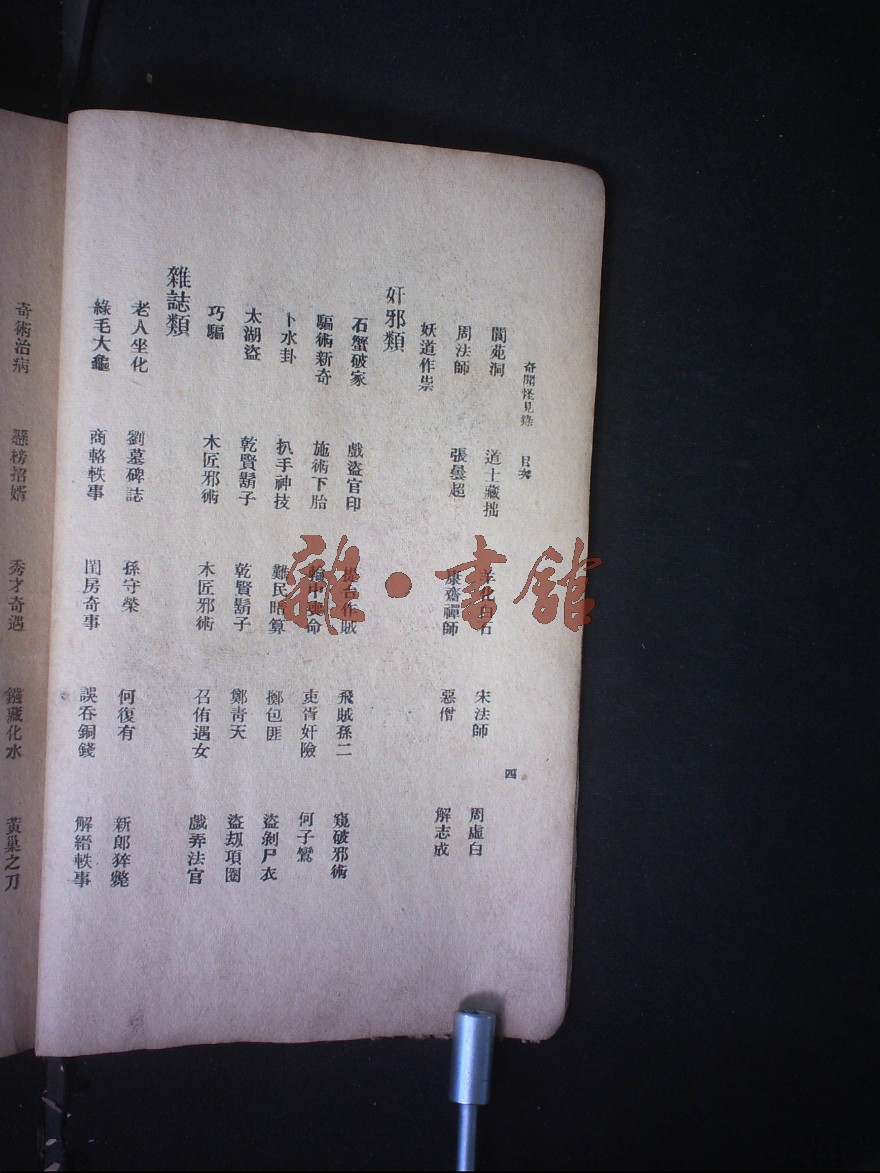 奇聞怪見錄 目次 四
閬苑洞 道士藏拙 羊化白石 宋法師 周虛白
周法師 張曇超 康齋禪師 惡僧 解志成
妖道作祟
奸邪類
石蟹破家 戲盜官印 作賊 飛賊孫二 窺破邪術
騙術新奇 施術下胎 中喪命 吏胥奸險 何子鸞
卜水卦 扒手神技 難民暗算 擲包匪 盜剝尸衣
太湖盜 乾賢鬍子 乾賢鬍子 鄭青天 盜刼項圈
巧騙 木匠邪術 木匠邪術 召侑遇女 戲弄法官
雜誌類
老人坐化 劉墓碑誌 孫守榮 何復有 新郎猝斃
綠毛大龜 商輅軼事 閨房奇事 誤吞銅錢 解縉軼事
奇術治病 懸榜招婿 秀才奇遇 鏹藏化水 黃巢之刀
雜·書館